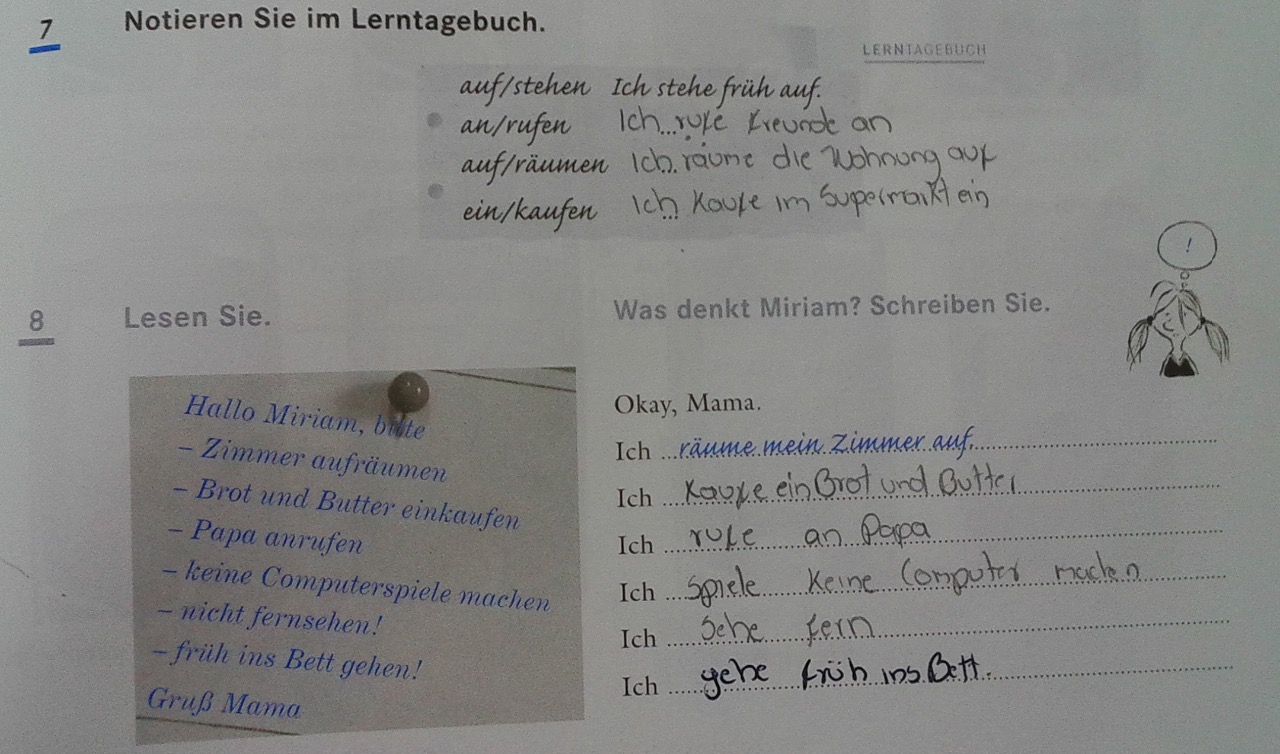 7 Notieren Sie im Lerntagebuch.
LERNTAGEBUCH
auf/stehen Ich stehe früh auf.
an/rufen Ich... rufe freunde an
auf/räumen Ich.. räume die Wohnung auf
ein/kaufen Ich... Kaufe im Supermarkt ein
!
8 Lesen Sie. Was denkt Miriam? Schreiben Sie.
Hallo Miriam, bitte
– Zimmer aufräumen
– Brot und Butter einkaufen
– Papa anrufen
– keine Computerspiele machen
– nicht fernsehen!
– früh ins Bett gehen!
Gruß Mama
Okay, Mama.
Ich ...räume mein Zimmer auf.
Ich ... Kaufe ein Brot und Butter
Ich ... rufe an Papa
Ich ... Spiele Keine Computer machen
Ich ... Sehe fern
Ich ... gehe früh ins Bett.